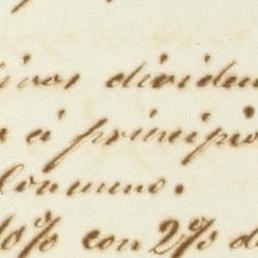 ivos dividen
a á principio
Comunno.
10% con 2% d